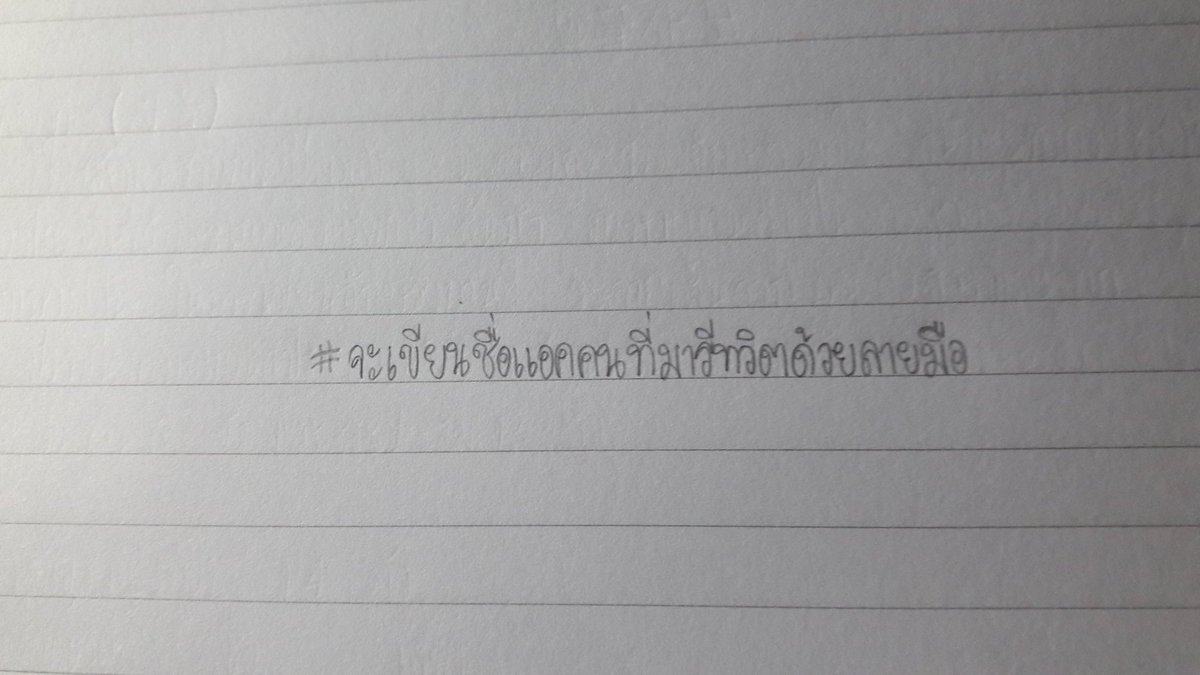 #จะเขียนชื่อแอคคนที่มารีทวิตด้วยลายมือ